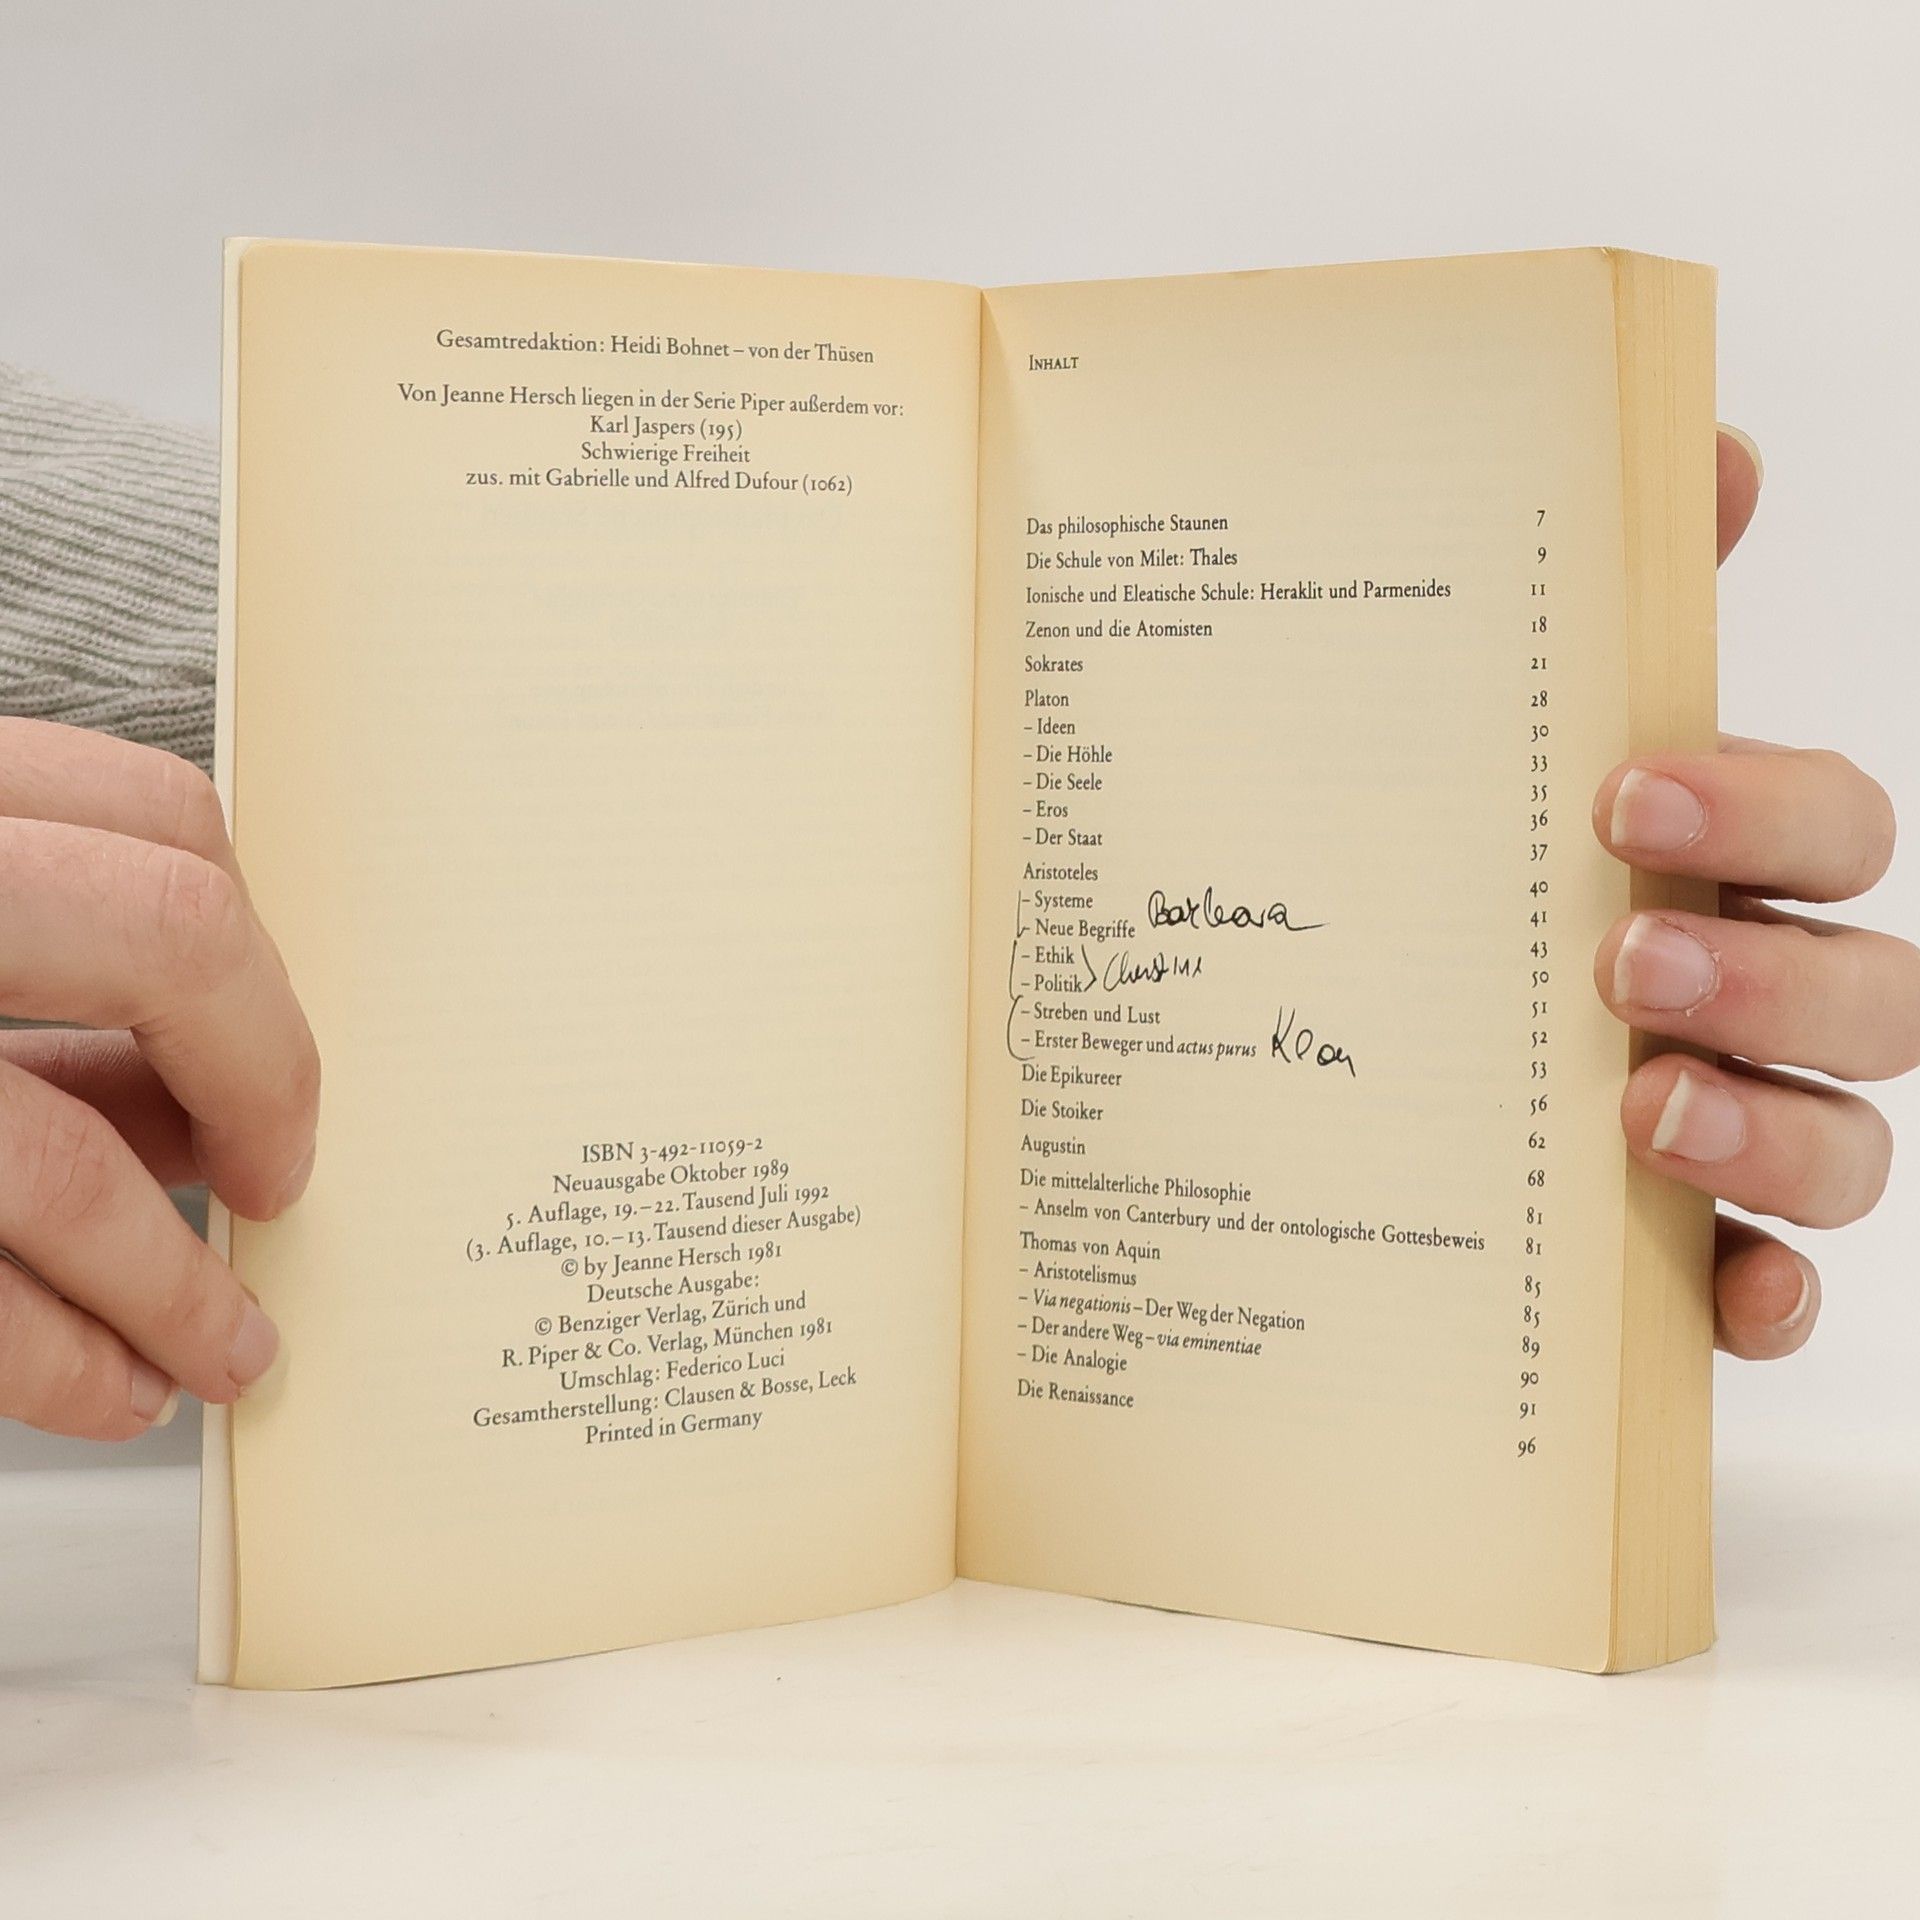 Gesamtredaktion: Heidi Bohnet – von der Thüsen
Von Jeanne Hersch liegen in der Serie Piper außerdem vor:
Karl Jaspers (195)
Schwierige Freiheit
zus. mit Gabrielle und Alfred Dufour (1062)
ISBN 3-492-11059-2
Neuausgabe Oktober 1989
5. Auflage, 19.–22. Tausend Juli 1992
(3. Auflage, 10.–13. Tausend dieser Ausgabe)
© by Jeanne Hersch 1981
Deutsche Ausgabe:
© Benziger Verlag, Zürich und
R. Piper & Co. Verlag, München 1981
Umschlag: Federico Luci
Gesamtherstellung: Clausen & Bosse, Leck
Printed in Germany
INHALT
Das philosophische Staunen 7
Die Schule von Milet: Thales 9
Ionische und Eleatische Schule: Heraklit und Parmenides 11
Zenon und die Atomisten 18
Sokrates 21
Platon 28
– Ideen 30
– Die Höhle 33
– Die Seele 35
– Eros 36
– Der Staat 37
Aristoteles 40
– Systeme 41
– Neue Begriffe Barbara 43
– Ethik 50
– Politik 51
– Streben und Lust 52
– Erster Beweger und actus purus 53
Die Epikureer 56
Die Stoiker 62
Augustin 68
Die mittelalterliche Philosophie 81
– Anselm von Canterbury und der ontologische Gottesbeweis 81
Thomas von Aquin 85
– Aristotelismus 85
– Via negationis – Der Weg der Negation 89
– Der andere Weg – via eminentiae 90
– Die Analogie 91
Die Renaissance 96